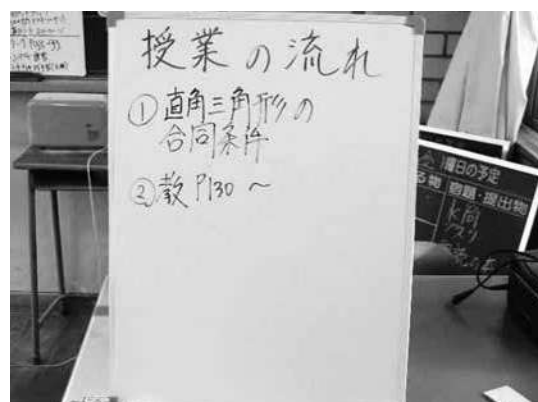 授業の流れ
①直角三角形の
合同条件
②教P130～
曜日の予定
る物 宿題・提出物